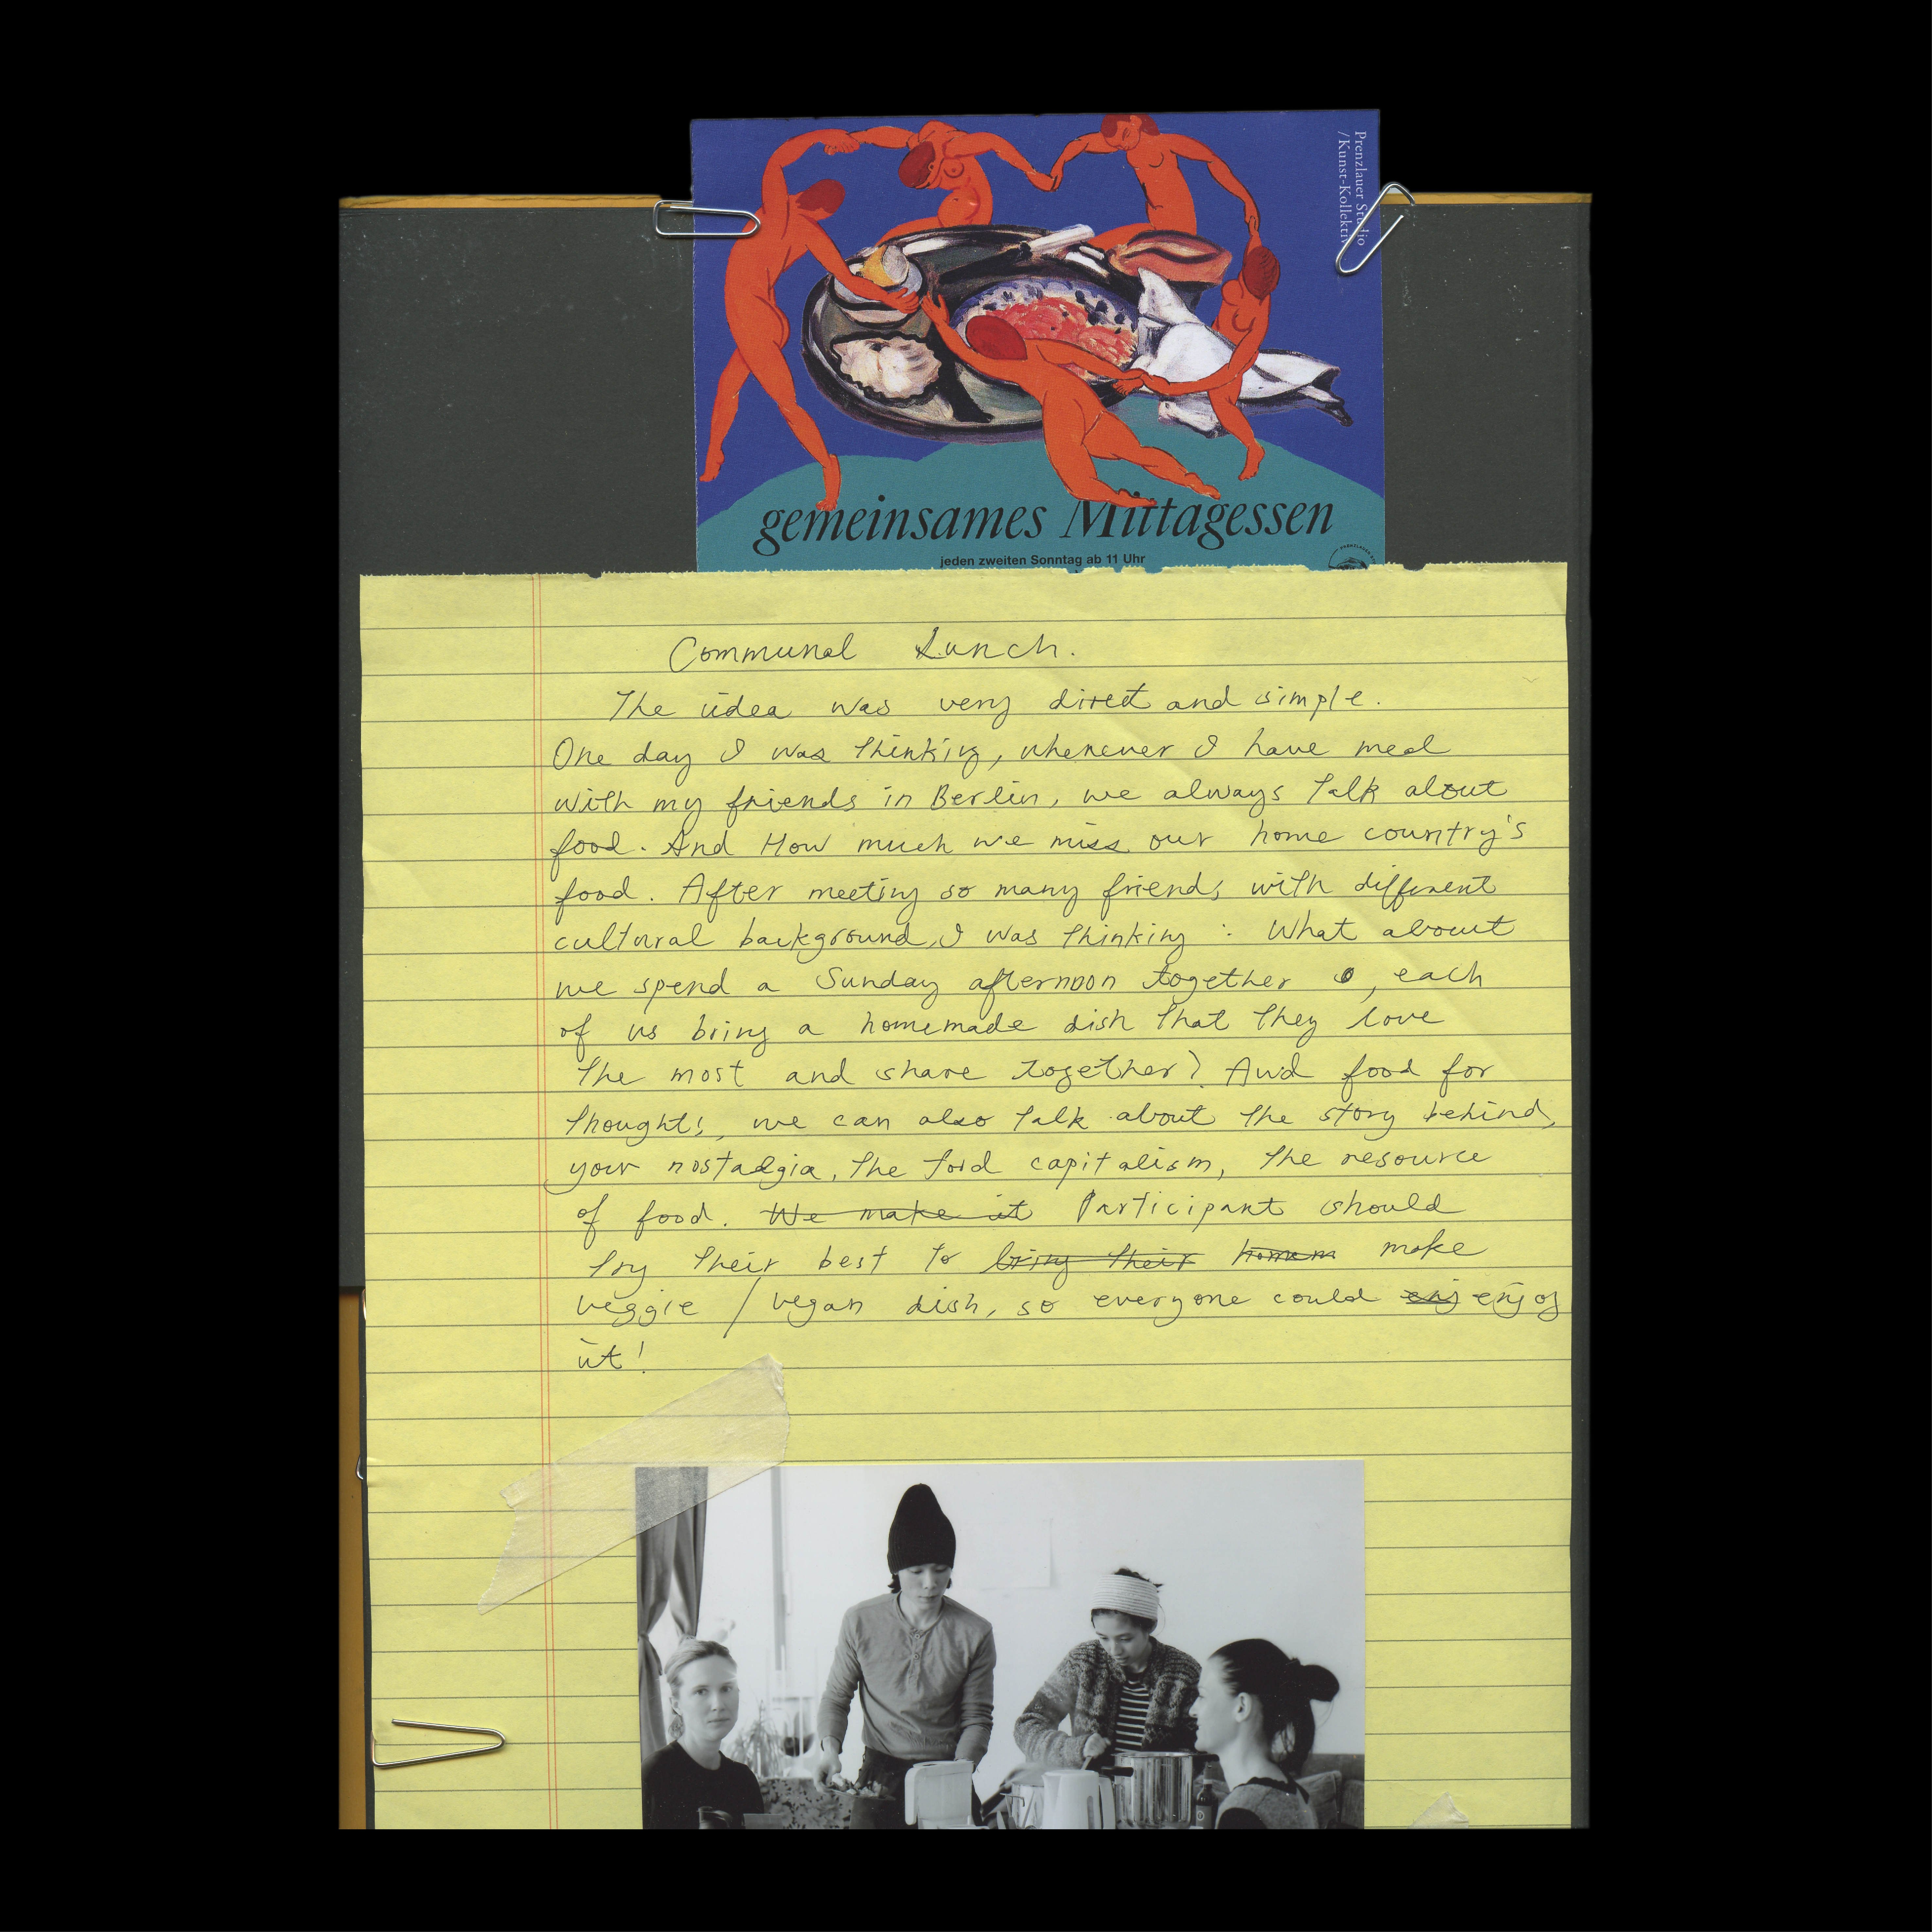 Prenzlauer Studio
/Kunst-Kollektiv
gemeinsames Mittagessen
jeden zweiten Sonntag ab 11 Uhr
Communal Lunch.
The idea was very direct and simple.
One day I was thinking, whenever I have meal
with my friends in Berlin, we always talk about
food. And How much we miss our home country's
food. After meeting so many friends with different
cultural background, I was thinking : What about
we spend a Sunday afternoon together , each
of us bring a homemade dish that they love
the most and share together? And food for
thought!, we can also talk about the story behind,
your nostadgia, the food capitalism, the resource
of food. We make it Participant should
try their best to bring their homem make
veggie / vegan dish, so everyone could enj enjoy
it!